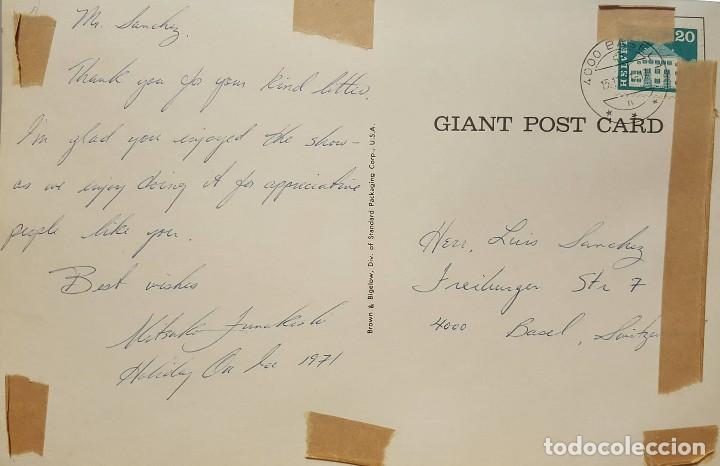 Mr. Sanchez.
Thank you for your kind letter.
I'm glad you enjoyed the show—
as we enjoy doing it for appreciative
people like you.
Best wishes
Mitsuko Funakoshi
Holiday On Ice 1971
Brown & Bigelow, Div. of Standard Packaging Corp., U.S.A.
4000 BASEL
15.1
HELVETIA
20
GIANT POST CARD
Herr, Luis Sanchez
Freiburger Str 7
4000 Basel, Switzer
todocoleccion